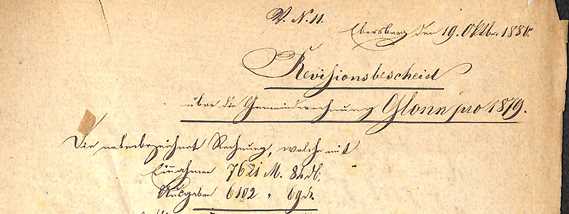 V. N. 11.
Ebersberg den 19. Oktbr. 1880.
Revisionsbescheid
über die Gemeinderechnung Glonn pro 1879.
Die nebenbezeichnete Rechnung, welche mit
Einnahmen 7621 M.
Ausgaben 6102 "